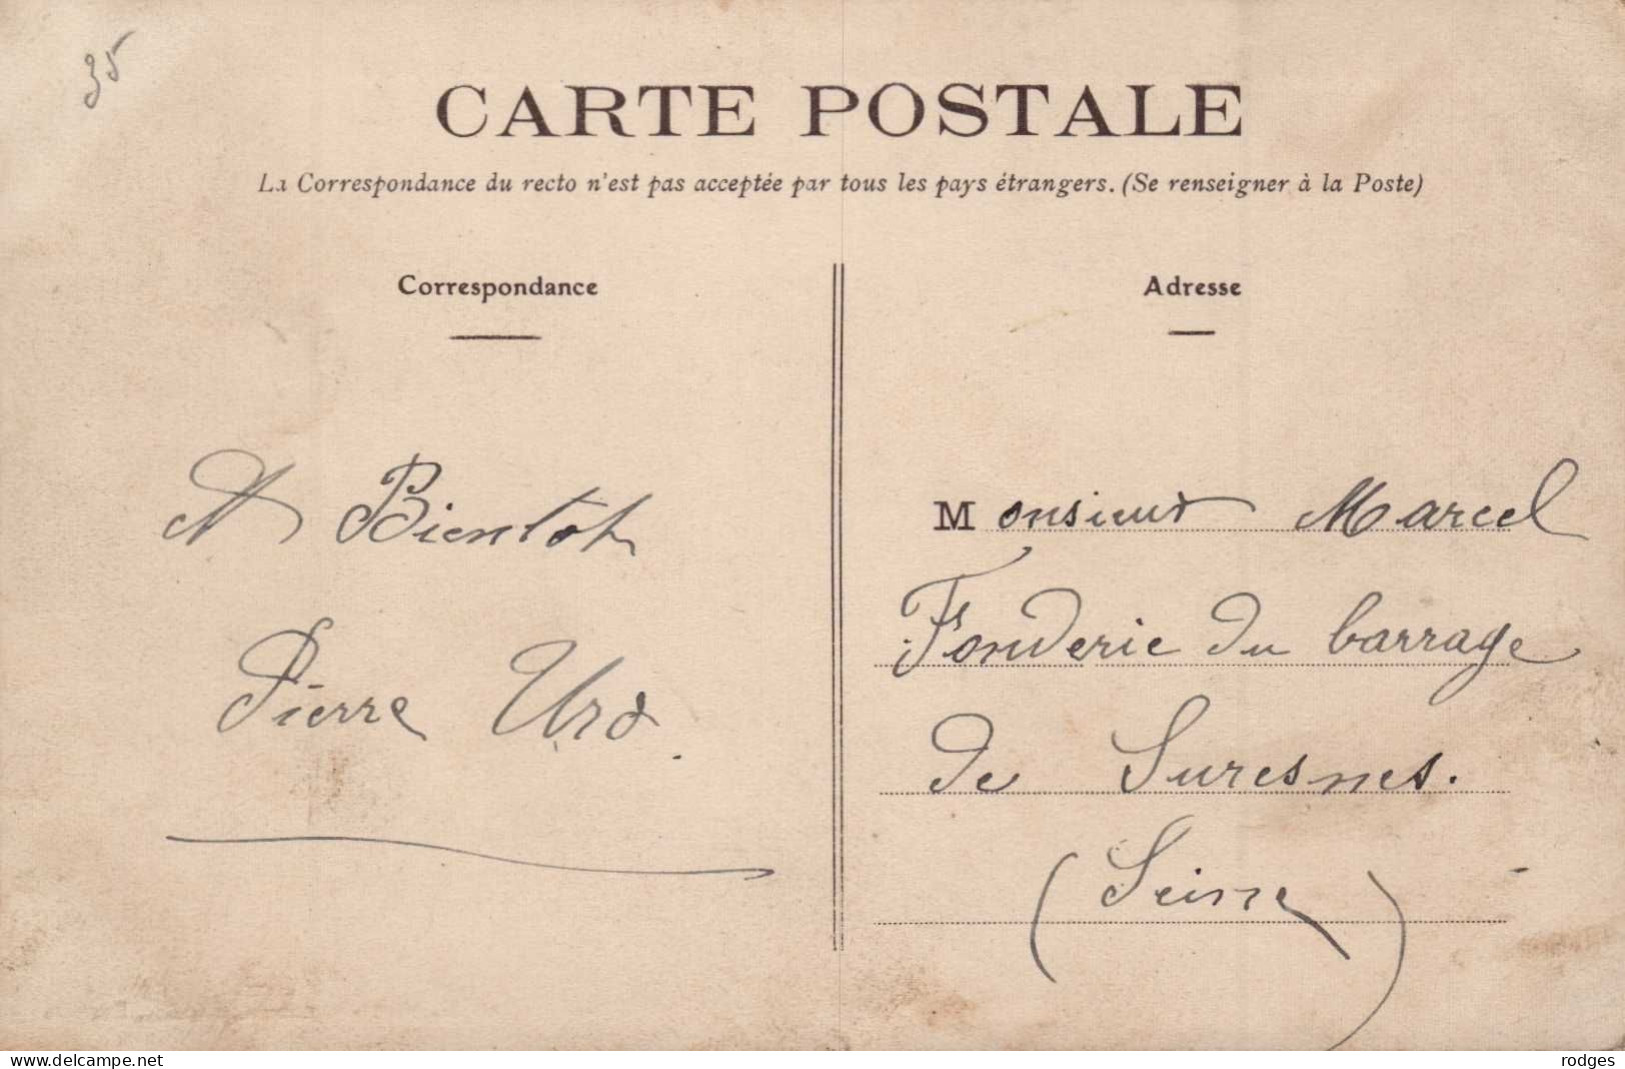 35
CARTE POSTALE
La Correspondance du recto n'est pas acceptée par tous les pays étrangers. (Se renseigner à la Poste)
Correspondance
A Bientot
Pierre
Adresse
Monsieur Marcel
Fonderie du barrage
de Suresnes.
(Seine)
www.delcampe.net
rodges